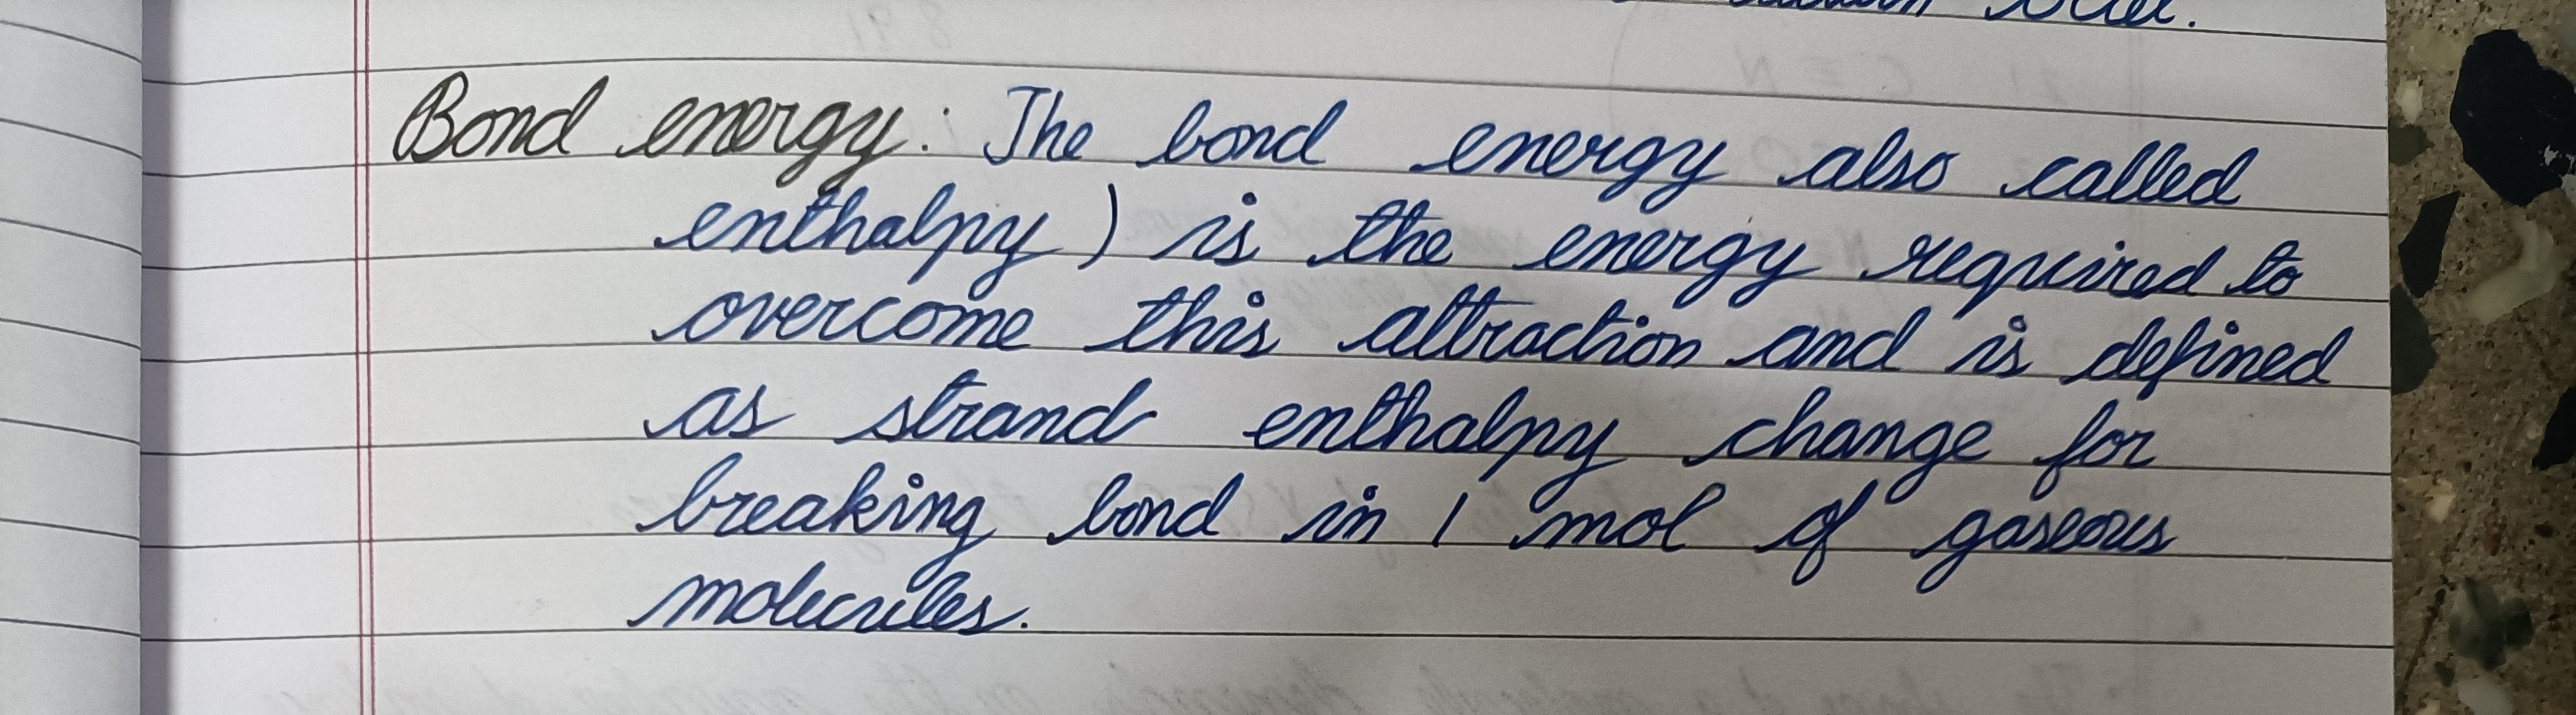 Bond energy: The bond energy also called
enthalpy) is the energy required to
overcome this attraction and is defined
as strand enthalpy change for
breaking bond in 1 mol of gaseous
molecules.